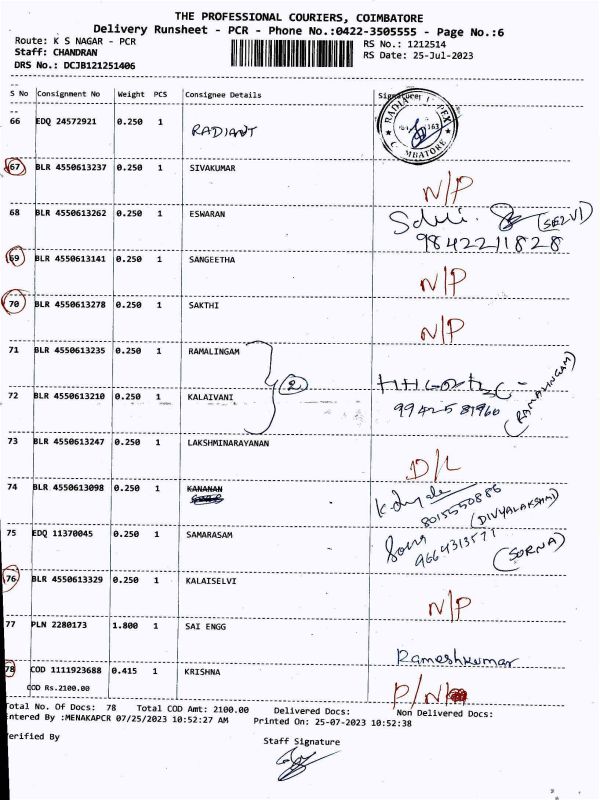 THE PROFESSIONAL COURIERS, COIMBATORE
Delivery Runsheet - PCR - Phone No.:0422-3505555 - Page No.:6
Route: K S NAGAR - PCR
RS No.: 1212514
Staff: CHANDRAN
RS Date: 25-Jul-2023
DRS No.: DCJB121251406
S No Consignment No Weight PCS Consignee Details
66 EDQ 24572921 0.250 1 RADIANT
67 BLR 4550613237 0.250 1 SIVAKUMAR N/P
68 BLR 4550613262 0.250 1 ESWARAN (SELVI)
9842211828
69 BLR 4550613141 0.250 1 SANGEETHA N/P
70 BLR 4550613278 0.250 1 SAKTHI N/P
71 BLR 4550613235 0.250 1 RAMALINGAM
2
72 BLR 4550613210 0.250 1 KALAIVANI 9942581960 (RAMALINGAM)
73 BLR 4550613247 0.250 1 LAKSHMINARAYANAN D/L
74 BLR 4550613098 0.250 1 KANANAN
8015550886 (DIVYALAKSHMI)
75 EDQ 11370045 0.250 1 SAMARASAM 9664313571 (SORNA)
76 BLR 4550613329 0.250 1 KALAISELVI N/P
77 PLN 2280173 1.800 1 SAI ENGG Rameshkumar
78 COD 1111923688 0.415 1 KRISHNA P/N
COD Rs.2100.00
Total No. Of Docs: 78 Total COD Amt: 2100.00 Delivered Docs: Non Delivered Docs:
Entered By :MENAKAPCR 07/25/2023 10:52:27 AM Printed On: 25-07-2023 10:52:38
erified By
Staff Signature